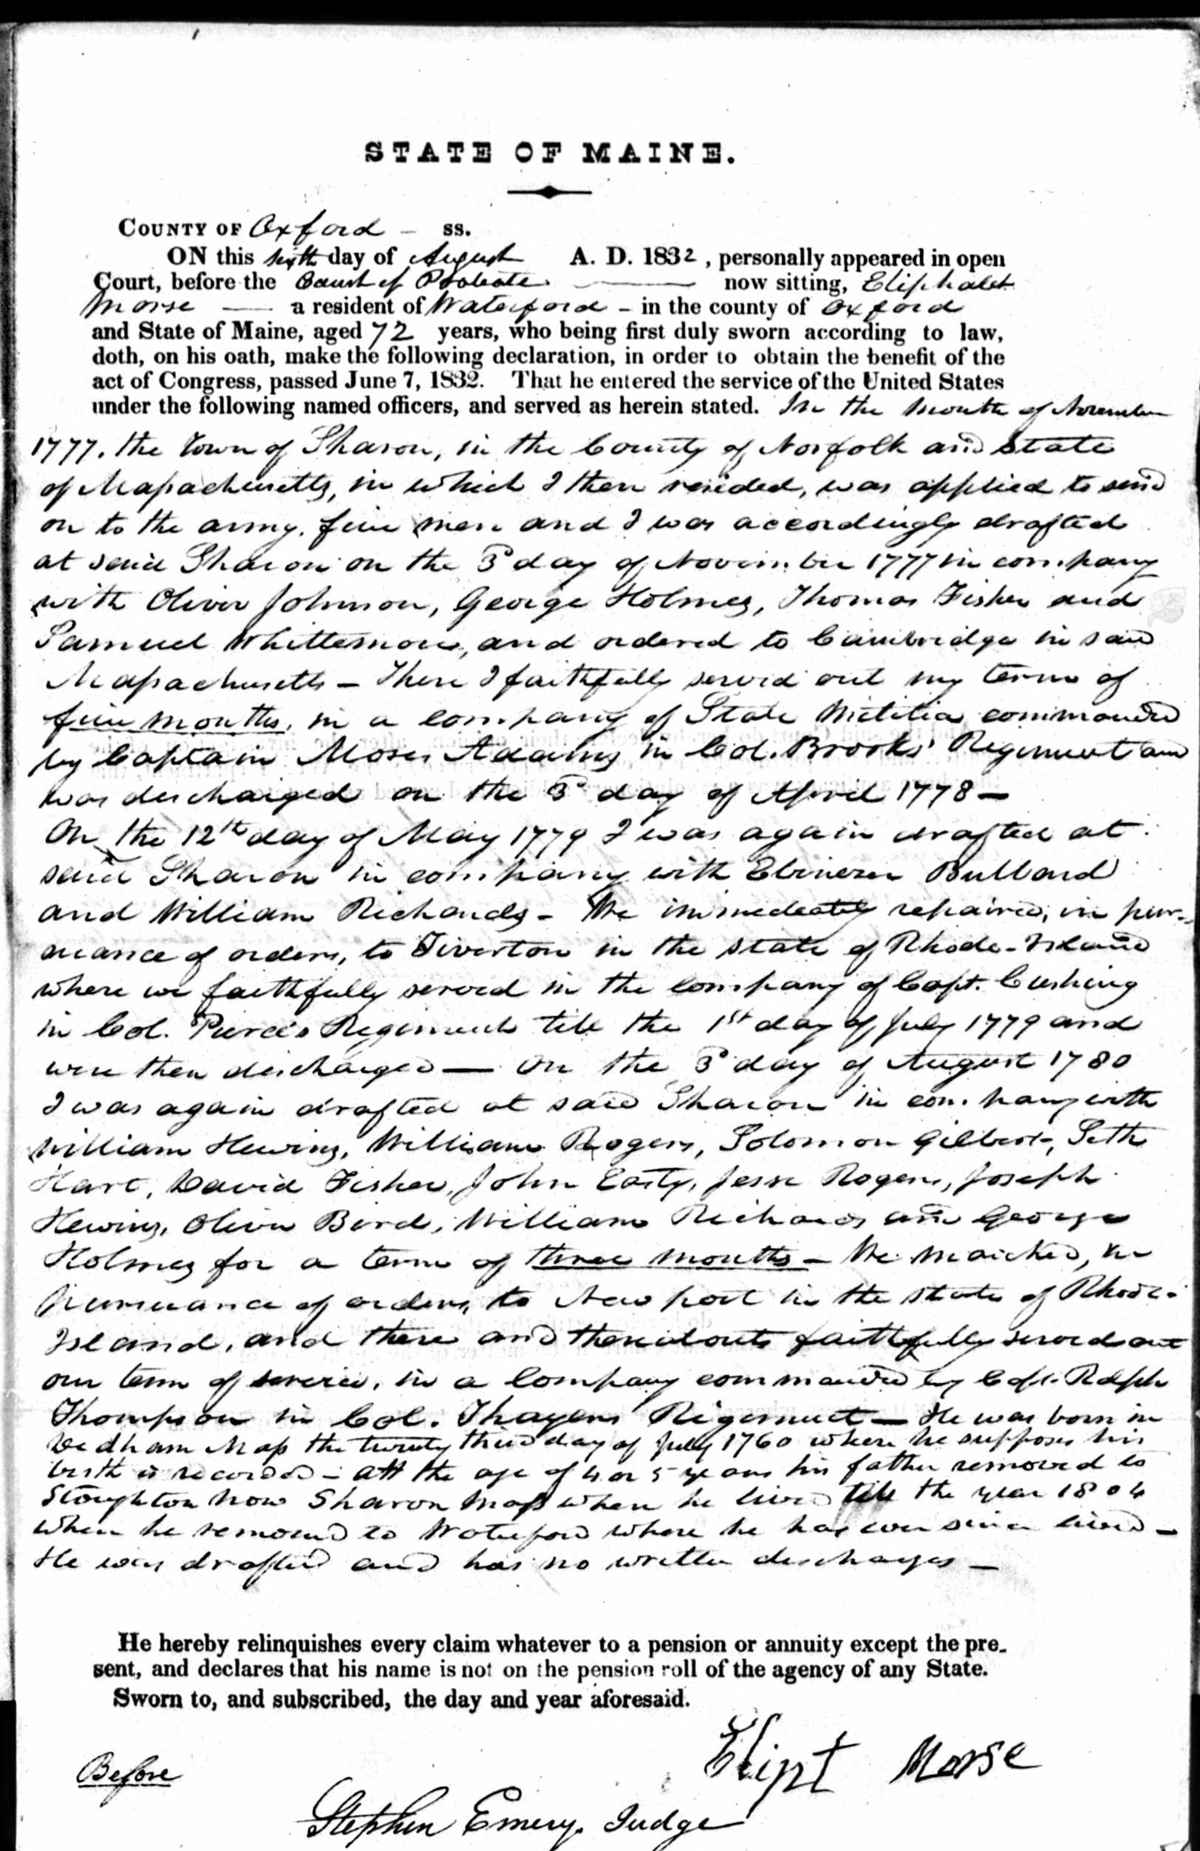 STATE OF MAINE.
COUNTY OF Oxford – ss.
ON this sixth day of August A. D. 1832, personally appeared in open
Court, before the Court of Probate ——— now sitting, Eliphalet
Morse —— a resident of Waterford – in the county of Oxford
and State of Maine, aged 72 years, who being first duly sworn according to law,
doth, on his oath, make the following declaration, in order to obtain the benefit of the
act of Congress, passed June 7, 1832. That he entered the service of the United States
under the following named officers, and served as herein stated. In the month of November
1777. the town of Sharon, in the County of Norfolk and State
of Massachusetts, in which I then resided, was applied to send
on to the army, five men and I was accordingly drafted
at said Sharon on the 3d day of November 1777 in company
with Oliver Johnson, George Holmes, Thomas Fisher and
Samuel Whittemore, and ordered to Cambridge in said
Massachusetts – There I faithfully served out my term of
five months, in a company of State Militia commanded
by Captain Moses Adams in Col. Brooks' Regiment and
was discharged on the 3d day of April 1778 –
On the 12th day of May 1779 I was again drafted at
said Sharon in company with Ebenezer Bullard
and William Richards – We immediately repaired, in pur-
suance of orders, to Tiverton in the state of Rhode-Island
where we faithfully served in the company of Capt. Cushing
in Col. Pierce's Regiment till the 1st day of July 1779 and
were then discharged — On the 3d day of August 1780
I was again drafted at said Sharon in company with
William Hewins, William Rogers, Solomon Gilbert, Seth
Hart, David Fisher, John Easty, Jesse Rogers, Joseph
Hewins, Oliver Bird, William Richards and George
Holmes for a term of three months – We marched, in
pursuance of orders, to Newport in the state of Rhode-
Island, and there and thereabouts faithfully served out
our term of service, in a Company commanded by Capt. Ralph
Thompson in Col. Thayers Regiment — He was born in
Dedham Mass the twenty third day of July 1760 where he supposes his
birth is recorded – Att the age of 4 or 5 years his father removed to
Stoughton now Sharon Mass where he lived till the year 1804
when he removed to Waterford where he has ever since lived –
He was drafted and has no written discharges –
He hereby relinquishes every claim whatever to a pension or annuity except the pre-
sent, and declares that his name is not on the pension roll of the agency of any State.
Sworn to, and subscribed, the day and year aforesaid.
Elipt Morse
Before
Stephen Emery. Judge